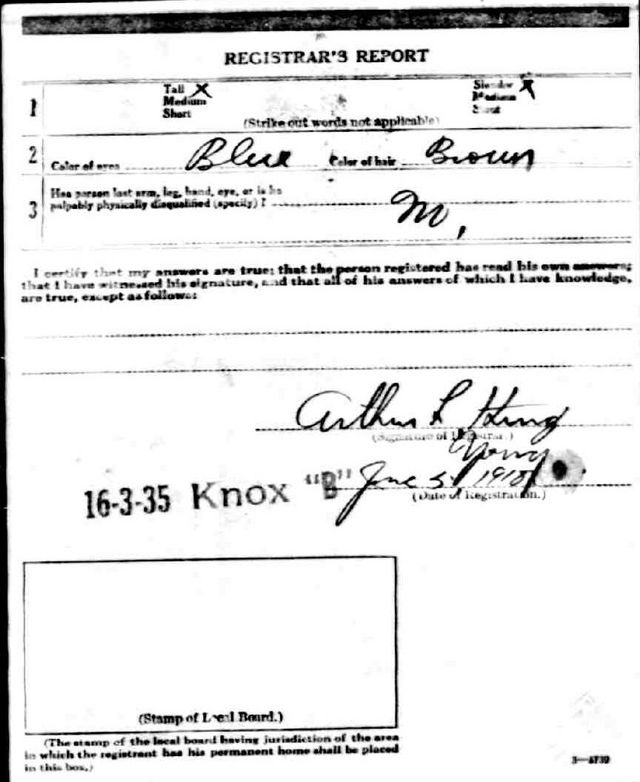 REGISTRAR'S REPORT
1 Tall X Slender X
Medium Medium
Short Stout
(Strike out words not applicable)
2 Color of eyes Blue Color of hair Brown
3 Has person lost arm, leg, hand, eye, or is he
palpably physically disqualified (specify)?
I certify that my answers are true; that the person registered has read his own answers;
that I have witnessed his signature, and that all of his answers of which I have knowledge,
are true, except as follows:
Arthur L King
(Signature of Registrar.)
16-3-35 Knox "B" June 5
(Date of Registration.)
(Stamp of Local Board.)
(The stamp of the local board having jurisdiction of the area
in which the registrant has his permanent home shall be placed
in this box.)